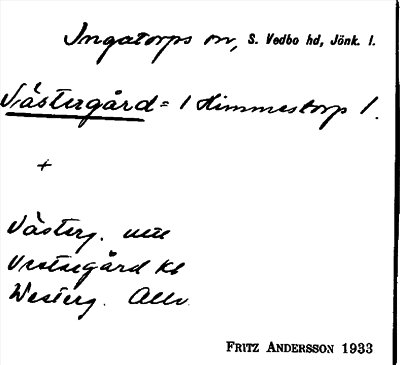 Ingatorps sn, S. Vedbo hd, Jönk. l.
Västergård = 1 Himmestorp 1.
+
Västerg. utt
Vestergård Kb
Westerg. Allm.
FRITZ ANDERSSON 1933